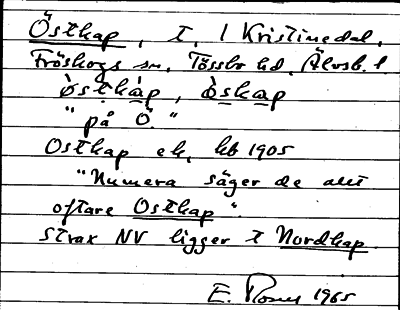 Östkap, t. l Kristinedal,
Fröskogs sn, Tössbo hd, Älvsb. l.
ò̀stkàp, òskap
"på Ö."
Ostkap ek, kb 1905
"Numera säger de allt
oftare Ostkap".
Strax NV ligger t Nordkap.
E. 1965